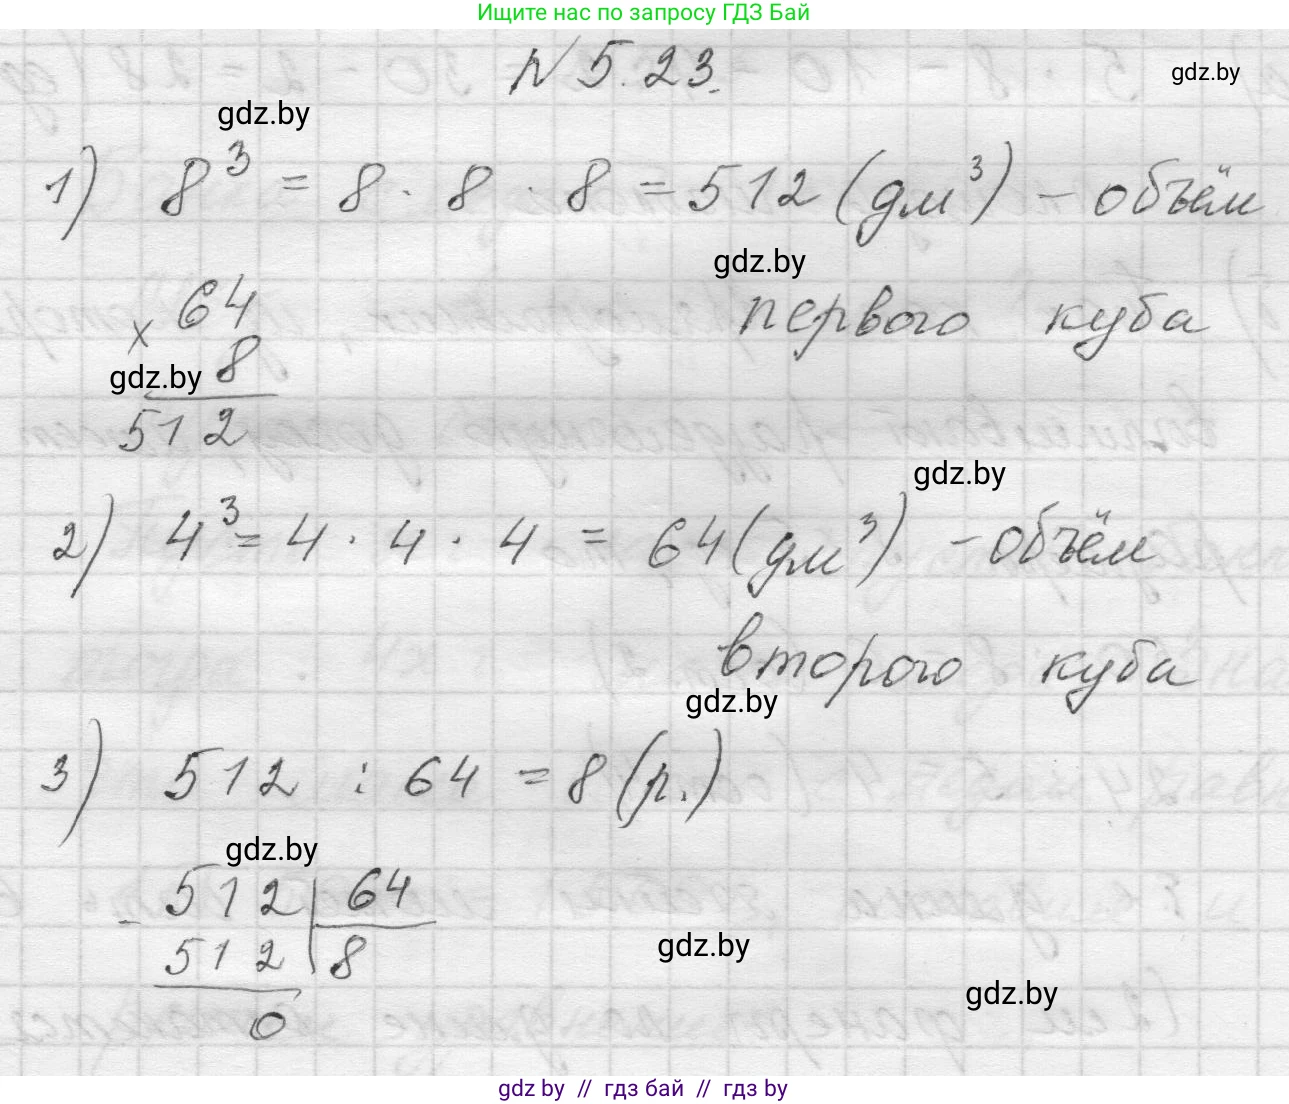 Ищите нас по запросу ГДЗ Бай
№ 5.23.
gdz.by
gdz.by
1) 8³ = 8 · 8 · 8 = 512 (дм³) – объём
gdz.by
первого куба
× 64
gdz.by 8
512
gdz.by
2) 4³ = 4 · 4 · 4 = 64 (дм³) – объём
второго куба
gdz.by
3) 512 : 64 = 8 (р.)
gdz.by
- 512 | 64
512 | 8
gdz.by
gdz.by
0
gdz by // гдз бай // гдз by